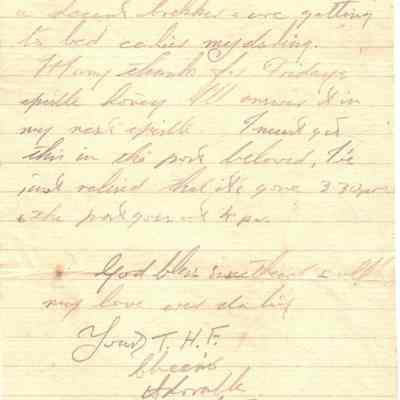 a decent brekker & are getting
to bed earlier my darling.
Many thanks for Fridays
epistle honey I'll answer it in
my next epistle. I must get
this in the post beloved, I've
just realised that it's gone 3.30pm
& the post goes at 4 pm.
God bless sweetheart & all
my love ever darling
Yours T. H. F.
Adorable